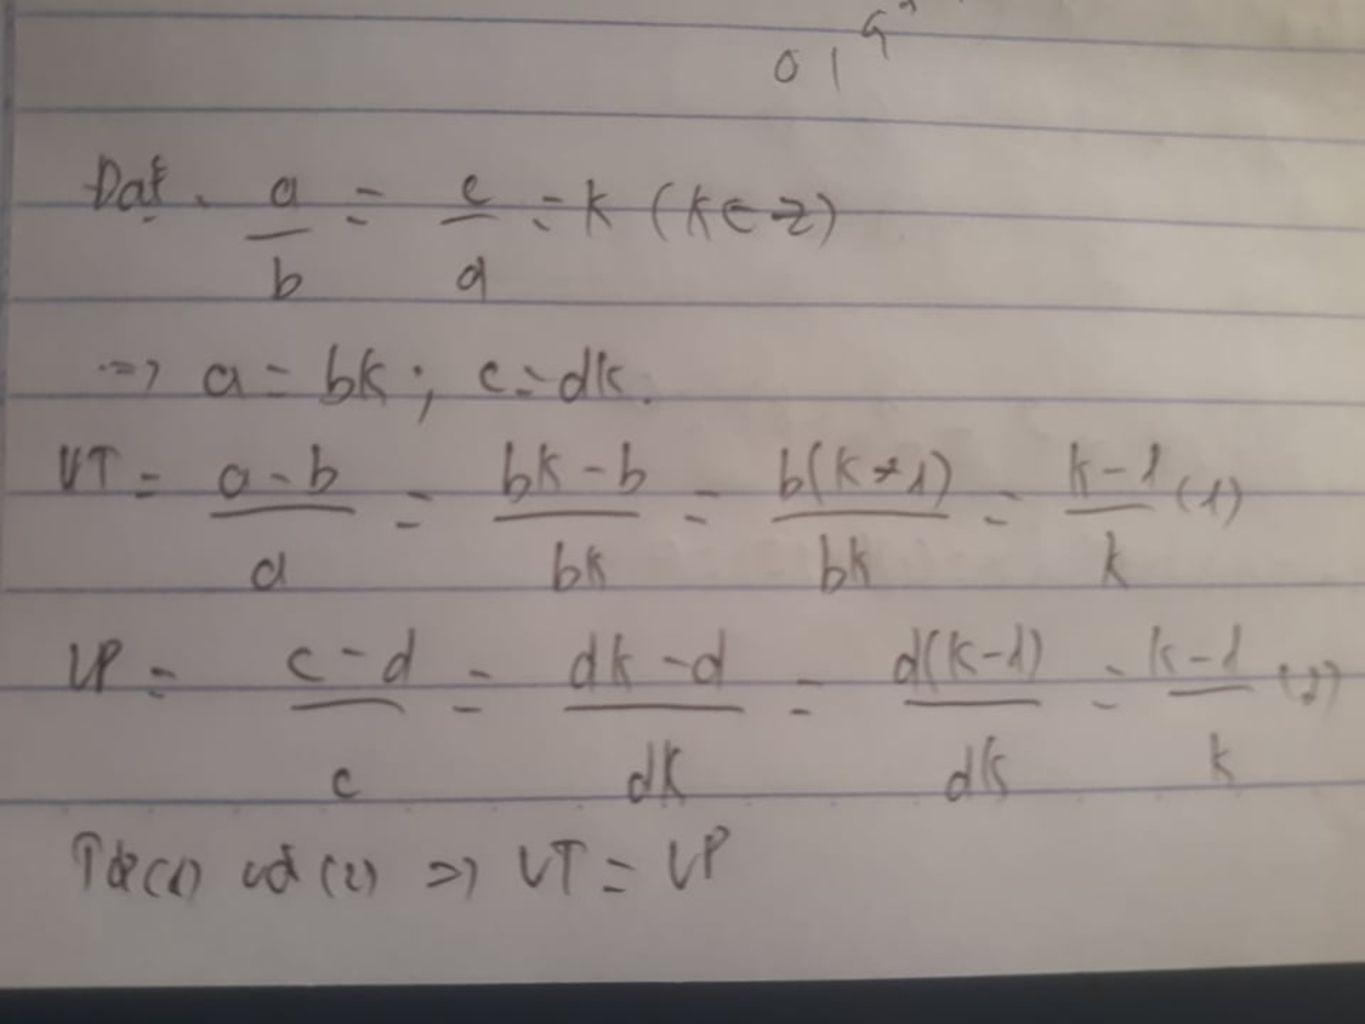 Đặt. a/b = c/d = k (k ∈ Z)
=> a = bk; c = dk.
VT = a - b/a = bk - b/bk = b(k - 1)/bk = k - 1/k (1)
VP = c - d/c = dk - d/dk = d(k - 1)/dk = k - 1/k (2)
Từ (1) và (2) => VT = VP